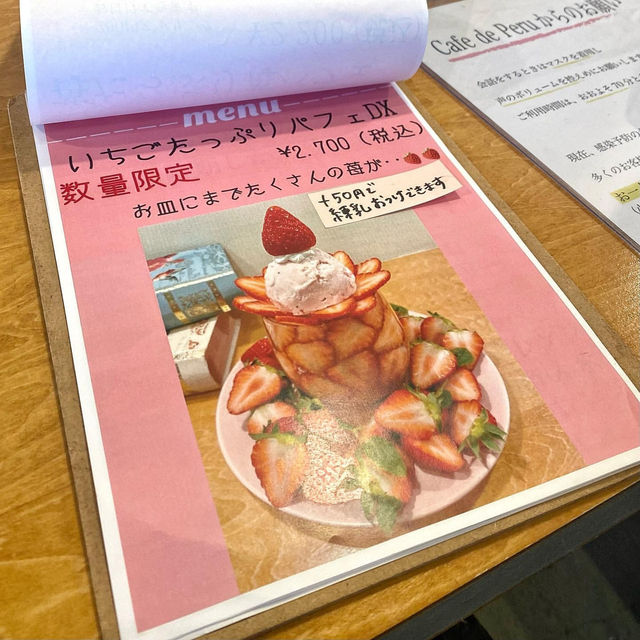 menu
いちごたっぷりパフェDX
¥2.700(税込)
数量限定
お皿にまでたくさんの苺が‥
+50円で
練乳おつけできます
Cafe de Peruからのお願い
会話をするときはマスクを着用し
声のボリュームを控えめにお願いしま
ご利用時間は、おおよそ70分
現在、感染予防
多くのお